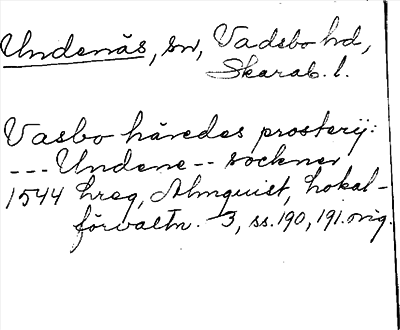 Undenäs, sn, Vadsbo hd,
Skarab. l.
Vasbo häredes prosterij:
--- Undene -- sockner
1544 hreg, Almquist, Lokal-
förvaltn. 3, ss. 190, 191. orig.